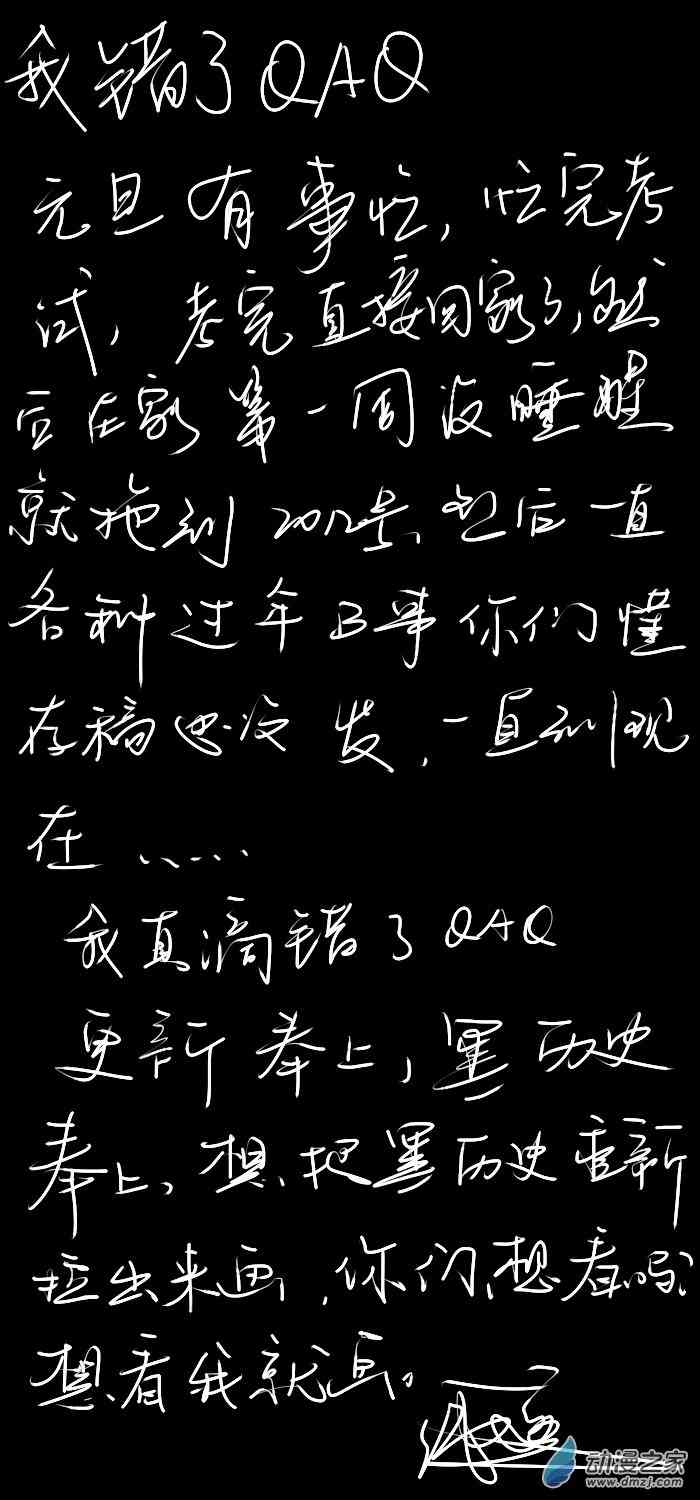 我错了QAQ
元旦有事忙,忙完考
试,考完直接回家了,然
后在家第一周没睡醒
就拖到20几号、然后一直
各种过年B事你们懂
存稿也没发,一直到现
在……
我真滴错了QAQ
更新奉上,黑历史
奉上、想把黑历史重新
拉出来画,你们想看吗?
想看我就画。
动漫之家
www.dmzj.com